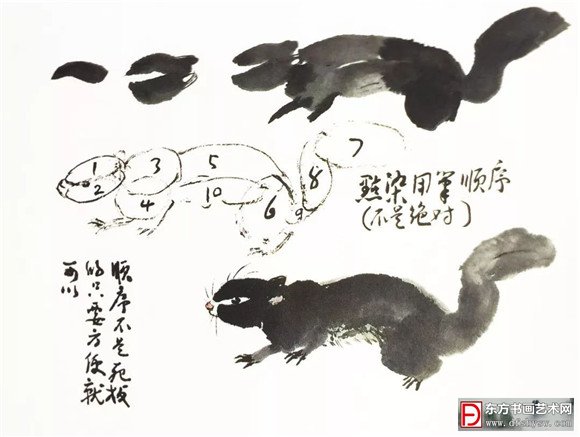 1
2
3
4
5
10
6
9
8
7
點染用筆顺序
(不是绝对)
顺序不是死板
的只要方便就
可以
东方书画艺术网
www.dfshysw.com